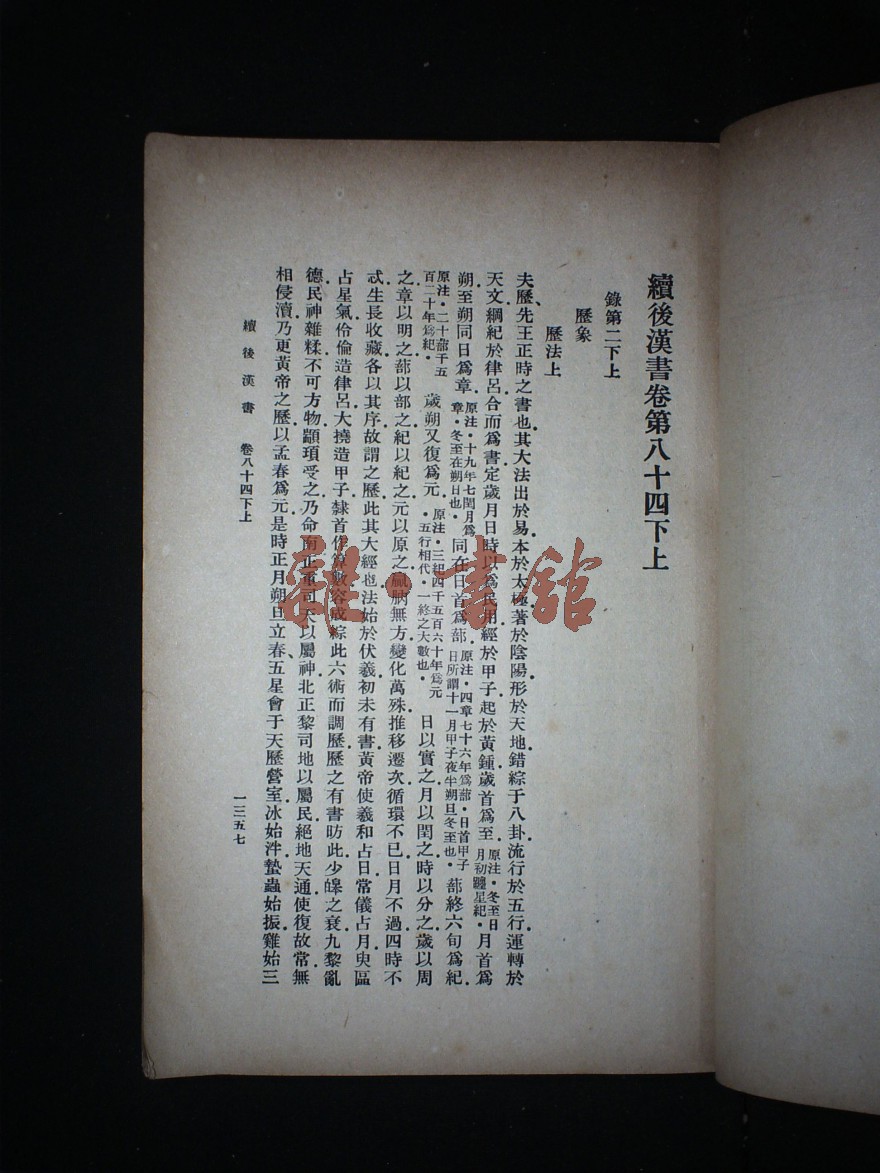 續後漢書卷第八十四下上
錄第二下上
歷象
歷法上
夫歷先王正時之書也其大法出於易本於太極著於陰陽形於天地錯綜于八卦流行於五行運轉於
天文綱紀於律呂合而爲書定歲月日時以爲民用經於甲子起於黃鍾歲首爲至原注·冬至日月初躔星紀·月首爲
朔至朔同日爲章原注·十九年七閏月爲章·冬至在朔日也·同在日首爲蔀原注·四章七十六年爲蔀·日首甲子日所謂十一月甲子夜半朔旦冬至也·蔀終六旬爲紀
原注·二十蔀千五百二十年爲紀·歲朔又復爲元原注·三紀四千五百六十年爲元·五行相代·一終之大數也·日以實之月以閏之時以分之歲以周
之章以明之蔀以部之紀以紀之元以原之贏朒無方變化萬殊推移遷次循環不已日月不過四時不
忒生長收藏各以其序故謂之歷此其大經也法始於伏羲初未有書黃帝使羲和占日常儀占月臾區
占星氣伶倫造律呂大撓造甲子隸首作算數容成綜此六術而調歷歷之有書昉此少皞之衰九黎亂
德民神雜糅不可方物顓頊受之乃命南正重司天以屬神北正黎司地以屬民絕地天通使復故常無
相侵瀆乃更黃帝之歷以孟春爲元是時正月朔旦立春五星會于天歷營室冰始泮蟄蟲始振雞始三
續後漢書 卷八十四下上
一三五七
雜·書館